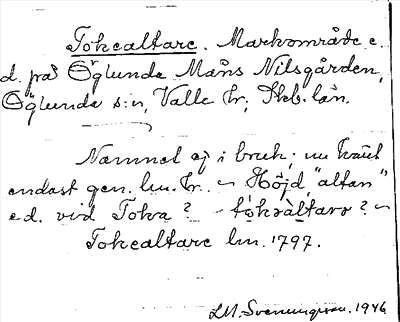 Tokealtare. Markområde e.
d. på Öglunda Måns Nilsgården,
Öglunda s:n, Valle hr; Skb. län.
Namnet ej i bruk; nu känt
endast gen. lm. hr. ~ Höjd, "altan"
e.d. vid Tokra? tòkraltarə? ~
Tokealtare lm. 1797.
L.M. Svenungsson. 1946